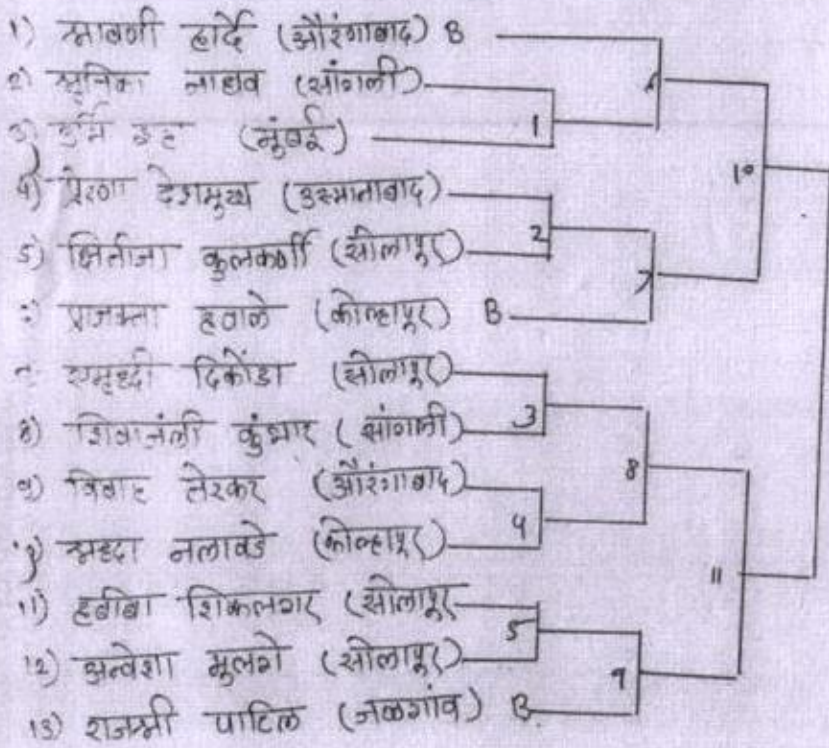 1) श्रावणी हार्दे (औरंगाबाद) B
2) श्रुतिका जाधव (सांगली)
3) (मुंबई)
4) प्रेरणा देशमुख (उस्मानाबाद)
5) क्षितीजा कुलकर्णी (सोलापूर)
प्राजक्ता हवाले (कोल्हापूर) B
समृध्दी दिकोंडा (सोलापूर)
8) शिवांजली कुंभार (सांगली)
9) तेरकर (औरंगाबाद)
श्रध्दा नलावडे (कोल्हापूर)
11) हबीबा शिकलगार (सोलापूर
12) अन्वेशा मुलगे (सोलापूर)
13) राजश्री पाटिल (जळगांव) B
1
2
3
4
5
6
7
8
9
10
11